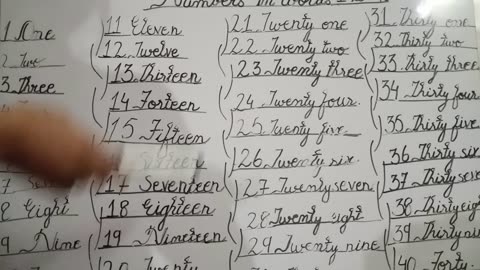 Numbers in words
1. One
2. Two
3. Three
7
8 Eight
9 Nine
11 Eleven
12. Twelve
13. Thirteen
14 Forteen
15. Fifteen
Sixteen
17 Seventeen
18 Eighteen
19 Nineteen
20 Twenty
21. Twenty one
22. Twenty two
23. Twenty three
24. Twenty four
25. Twenty five
26. Twenty six
27 Twenty seven
28 Twenty eight
29 Twenty nine
31. Thirty one
32. Thirty two
33. Thirty three
34 Thirty four
35. Thirty five
36 Thirty six
37 Thirty seven
38. Thirty eigh
39. Thirty ni
40. Forty.